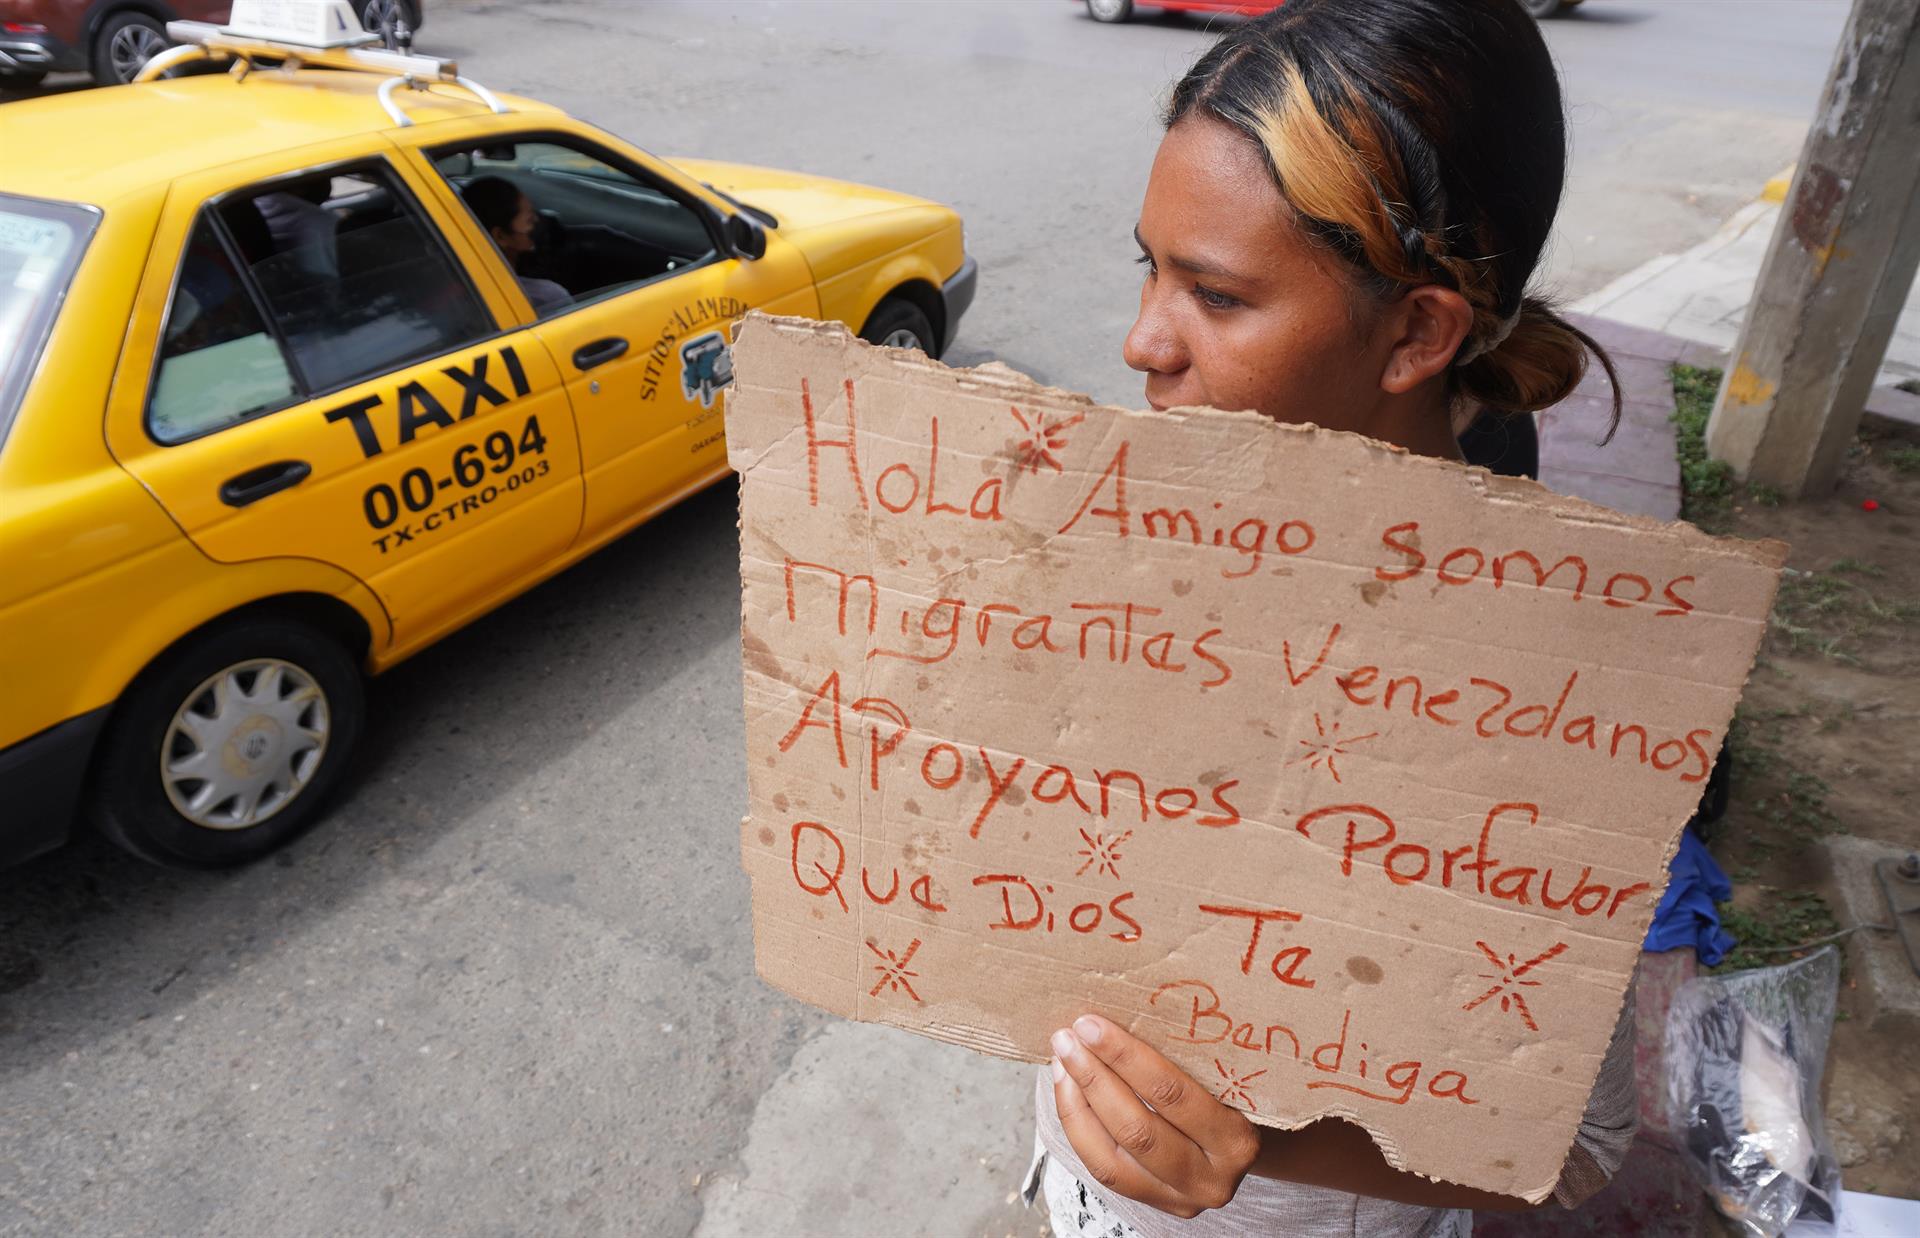 TAXI
00-694
TX-CTRO-003
SITIOS "ALAMEDA
OAXACA
HoLa Amigo somos
migrantes Venezolanos
APoyanos Porfavor
Que Dios Te
Bendiga